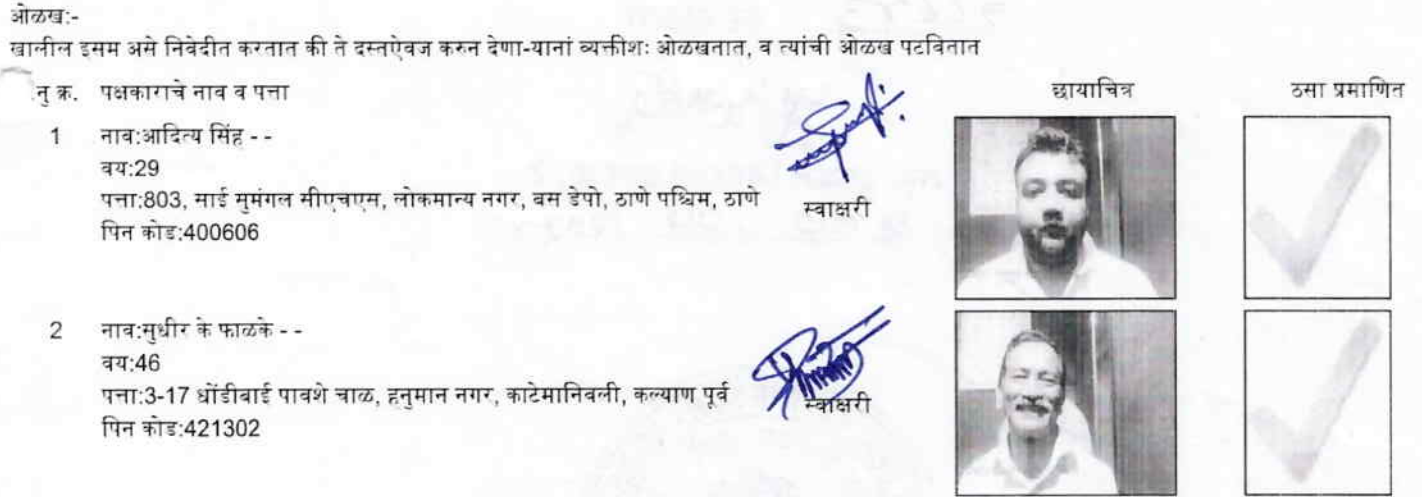 ओळख:-
खालील इसम असे निवेदीत करतात की ते दस्तऐवज करुन देणा-यानां व्यक्तीशः ओळखतात, व त्यांची ओळख पटवितात
नु क्र. पक्षकाराचे नाव व पत्ता छायाचित्र ठसा प्रमाणित
1 नाव:आदित्य सिंह - -
वय:29
पत्ता:803, साई सुमंगल सीएचएस, लोकमान्य नगर, बस डेपो, ठाणे पश्चिम, ठाणे
स्वाक्षरी
पिन कोड:400606
2 नाव:सुधीर के फाळके - -
वय:46
पत्ता:3-17 धोंडीबाई पावशे चाळ, हनुमान नगर, काटेमानिवली, कल्याण पूर्व
स्वाक्षरी
पिन कोड:421302